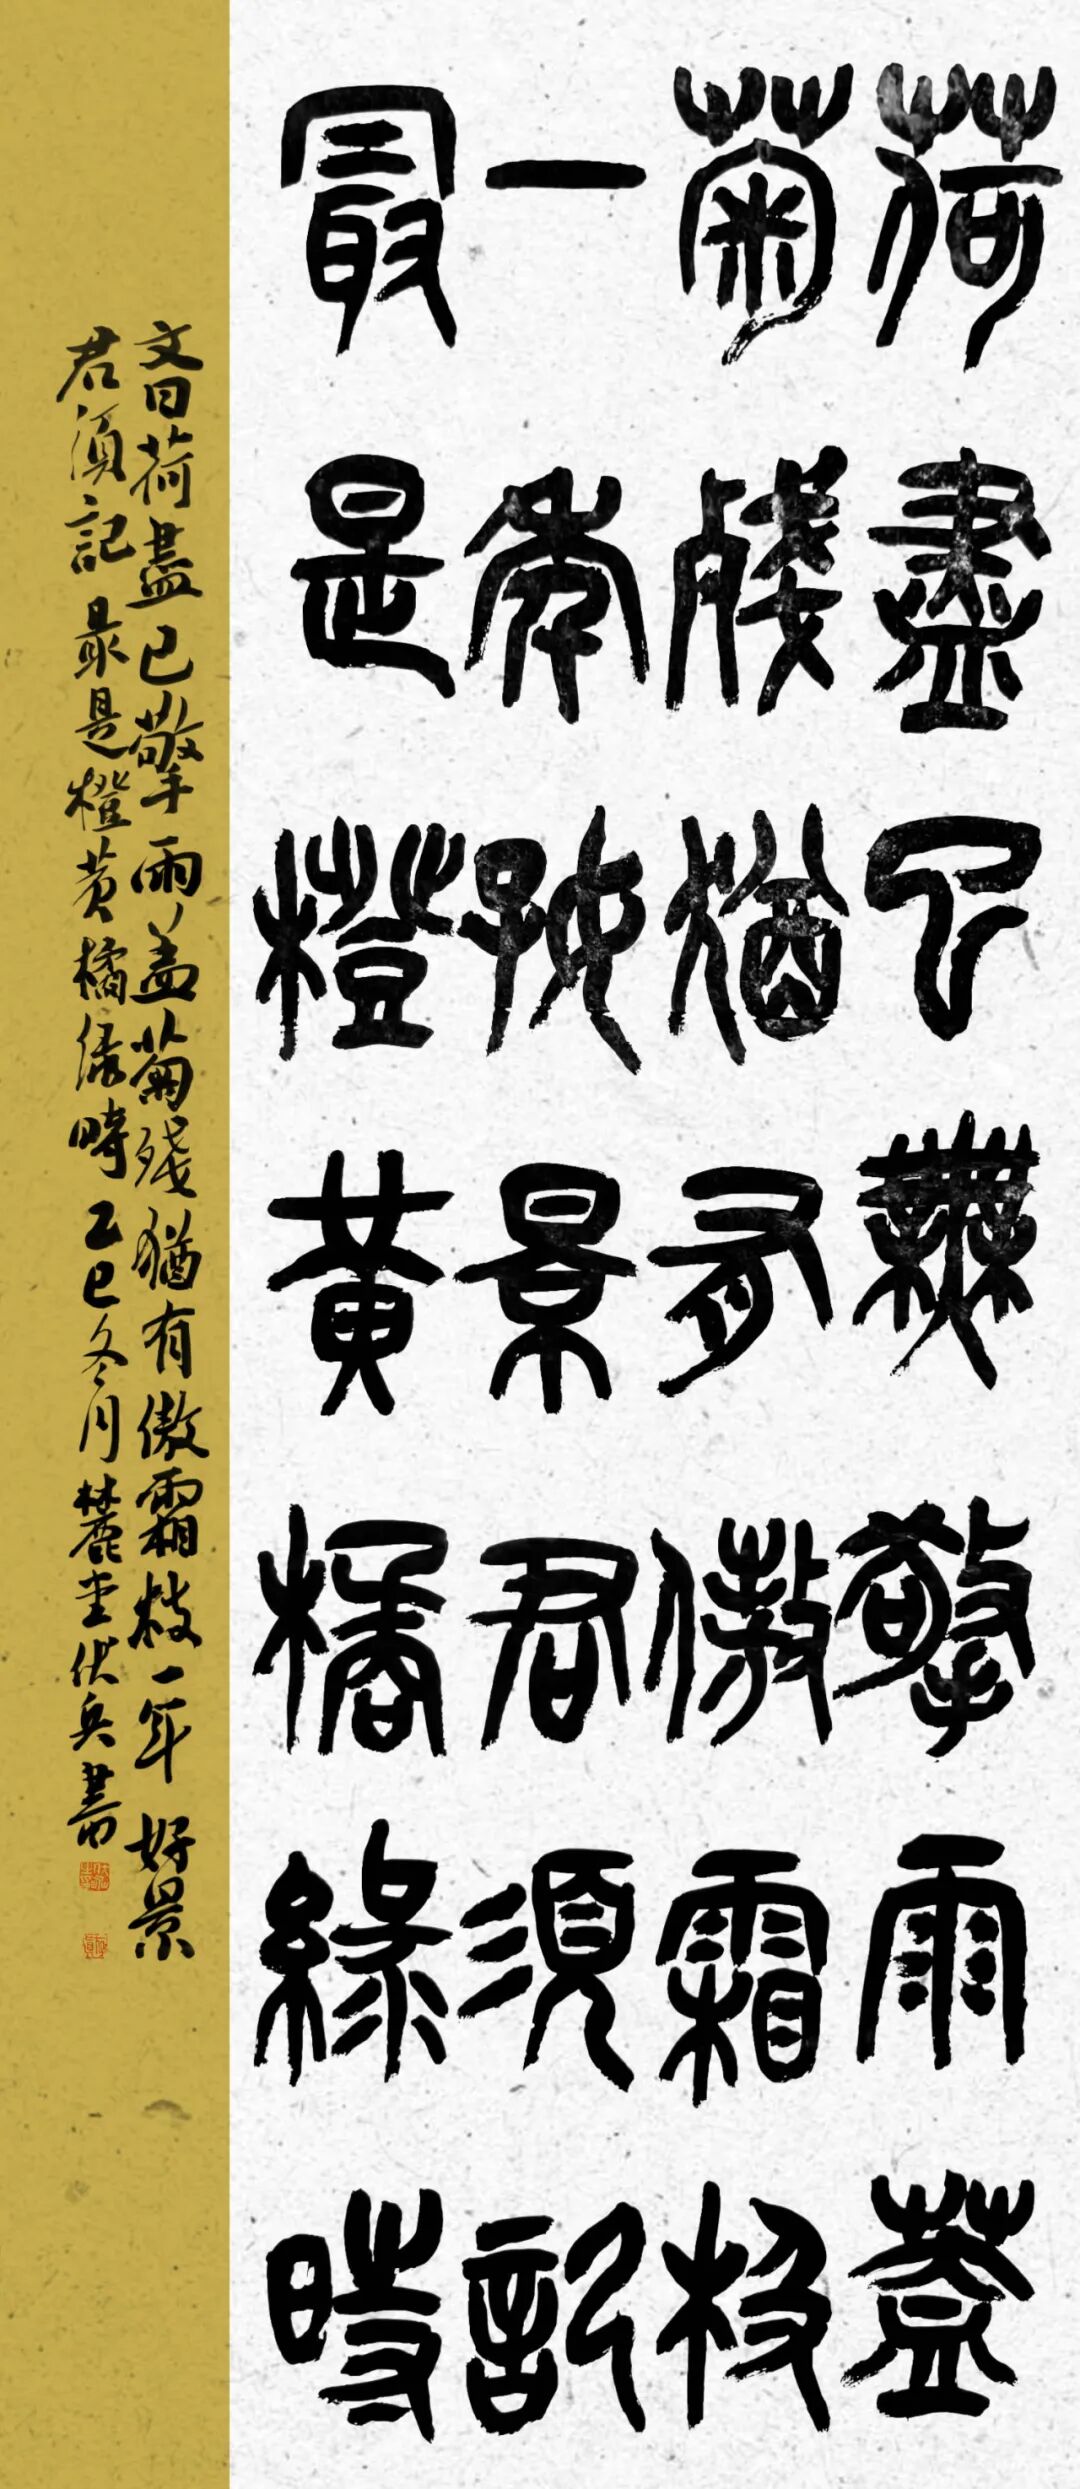 荷盡已無擎雨蓋
菊殘猶有傲霜枝
一年好景君須記
最是橙黃橘綠時
文曰荷盡已擎雨盖菊残猶有傲霜枝一年好景
君須記最是橙黄橘緑時乙巳冬月麓堂伏兵書